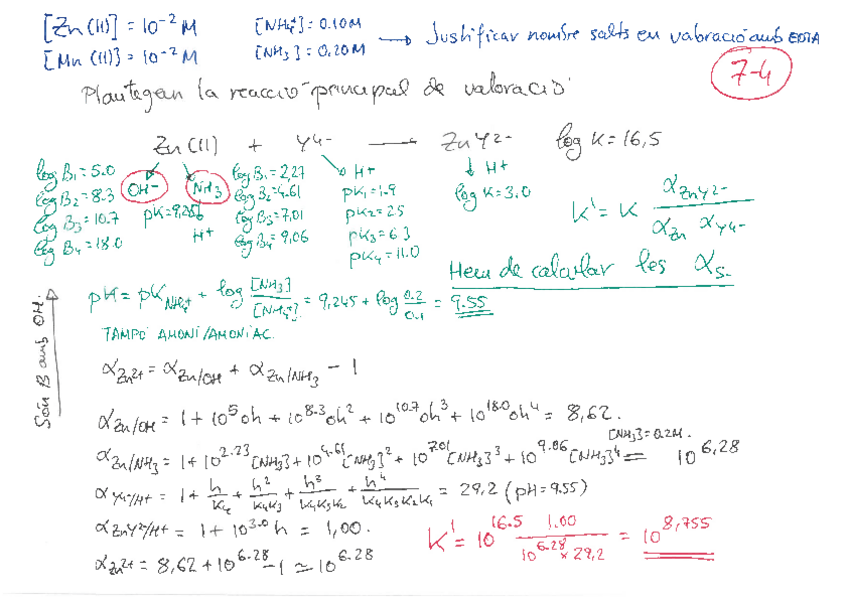 [Zn(II)] = 10⁻² M [NH₄⁺] = 0.10M
[Mn(II)] = 10⁻² M [NH₃] = 0.20M → Justificar nombre salts en valoració amb EDTA
7-4
Plantegem la reacció principal de valoració
Zn(II) + Y⁴⁻ → ZnY²⁻ log K = 16,5
log B₁ = 5.0 OH⁻ NH₃ log B₁ = 2,27 H⁺ H⁺
log B₂ = 8.3 pK = 9,245 log B₂ = 4.61 pK₁ = 1.9 log K = 3.0
log B₃ = 10.7 H⁺ log B₃ = 7,01 pK₂ = 2.5
log B₄ = 18.0 log B₄ = 9,06 pK₃ = 6.3
pK₄ = 11.0
K' = K α ZnY²⁻ / α Zn α Y⁴⁻
Hem de calcular les αs-
Són B amb OH.
pH = pK NH₄⁺ + log [NH₃]/[NH₄⁺] = 9,245 + log 0.2/0.1 = 9.55
TAMPÓ AMONI/AMONÍAC.
α Zn²⁺ = α Zn/OH + α Zn/NH₃ - 1
α Zn/OH = 1 + 10⁵ oh + 10^8.3 oh² + 10^10.7 oh³ + 10^18.0 oh⁴ = 8,62.
[NH₃] = 0.2M.
α Zn/NH₃ = 1 + 10^2.23 [NH₃] + 10^4.61 [NH₃]² + 10^7.01 [NH₃]³ + 10^9.06 [NH₃]⁴ = 10^6,28
α Y⁴⁻/H⁺ = 1 + h/K₄ + h²/K₄K₃ + h³/K₄K₃K₂ + h⁴/K₄K₃K₂K₁ = 29,2 (pH = 9.55)
α ZnY²⁻/H⁺ = 1 + 10^3.0 h = 1,00.
α Zn²⁺ = 8,62 + 10^6.28 - 1 ≃ 10^6.28
K' = 10^16.5 1.00 / 10^6.28 × 29,2 = 10^8,755